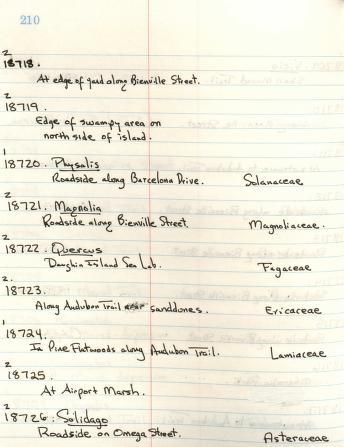 210
2
18718.
At edge of yard along Bienville Street.
2
18719.
Edge of swampy area on
north side of island.
1
18720. Physalis
Roadside along Barcelona Drive. Solanaceae
2
18721. Magnolia
Roadside along Bienville Street. Magnoliaceae.
2
18722. Quercus
Dauphin Island Sea Lab. Fagaceae
2
18723.
Along Audubon Trail sanddones. Ericaceae
1
18724.
In Pine Flatwoods along Audubon Trail. Lamiaceae
2
18725.
At Airport Marsh.
2
18726. Solidago
Roadside on Omega Street. Asteraceae